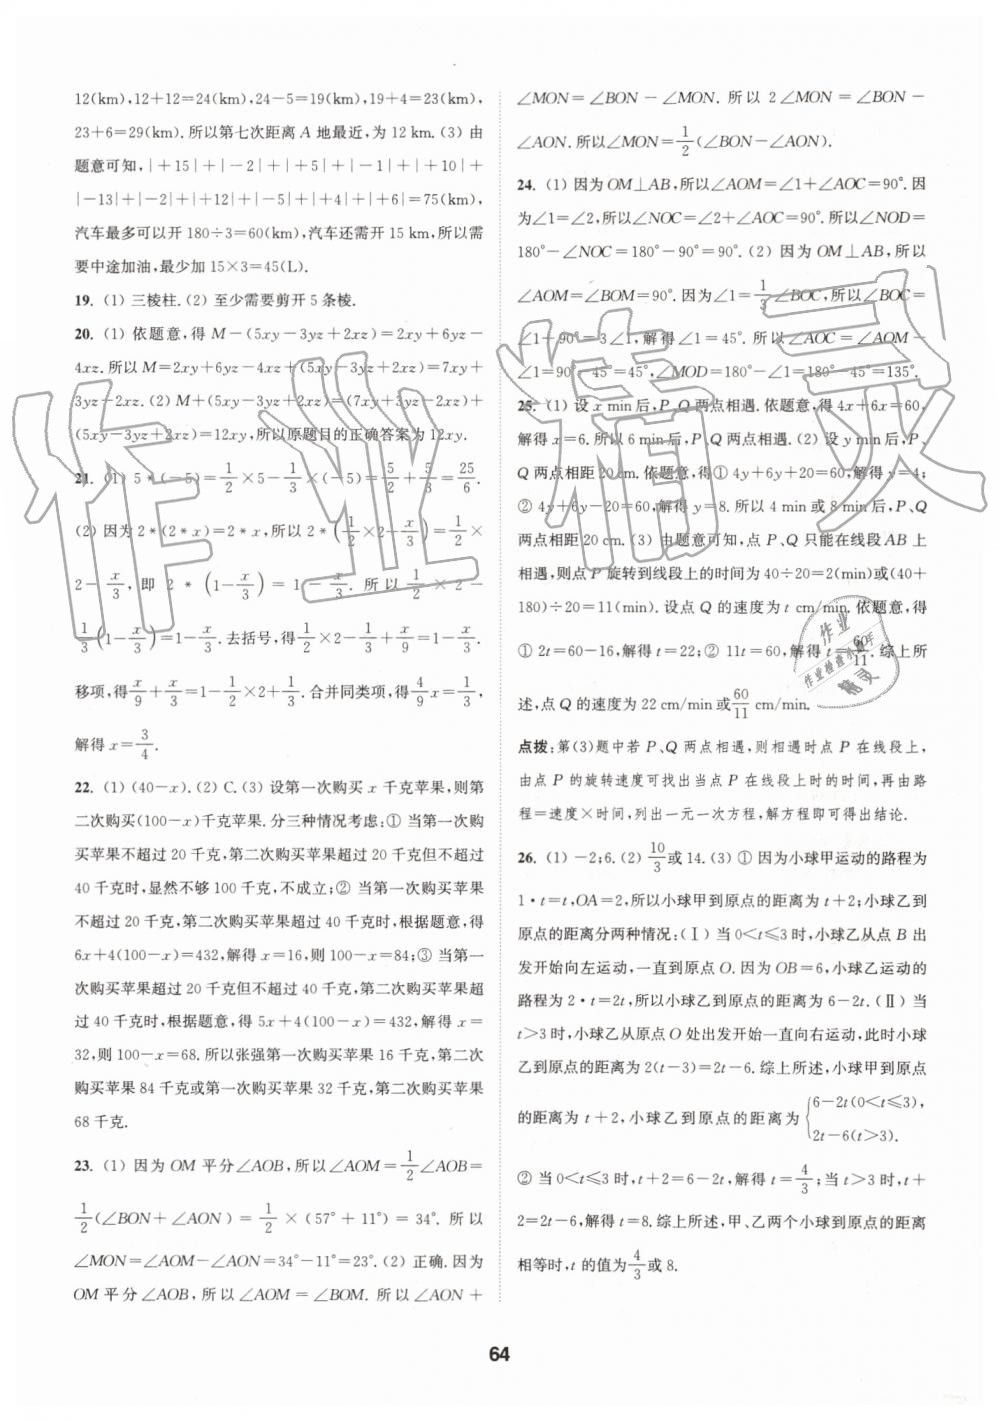 12(km),12+12=24(km),24-5=19(km),19+4=23(km),
23+6=29(km).所以第七次距离 A 地最近,为 12 km.(3) 由
题意可知,|+15|+|-2|+|+5|+|-1|+|+10|+
|-13|+|-2|+|+12|+|-5|+|+4|+|+6|=75(km),
汽车最多可以开 180÷3=60(km),汽车还需开 15 km,所以需
要中途加油,最少加 15×3=45(L).
19. (1) 三棱柱.(2) 至少需要剪开 5 条棱.
20. (1) 依题意,得 M-(5xy-3yz+2xz)=2xy+6yz-
4xz.所以 M=2xy+6yz-4xz+(5xy-3yz+2xz)=7xy+
3yz-2xz.(2) M+(5xy-3yz+2xz)=(7xy+3yz-2xz)+
(5xy-3yz+2xz)=12xy,所以原题目的正确答案为 12xy.
21. (1) 5*(-5)=1/2×5-1/3×(-5)=5/2+5/3=25/6.
(2) 因为 2*(2*x)=2*x,所以 2*(1/2×2-x/3)=1/2×
2-x/3,即 2*(1-x/3)=1-x/3.所以 1/2×2-
1/3(1-x/3)=1-x/3.去括号,得1/2×2-1/3+x/9=1-x/3.
移项,得x/9+x/3=1-1/2×2+1/3.合并同类项,得4/9x=1/3,
解得 x=3/4.
22. (1) (40-x).(2) C.(3) 设第一次购买 x 千克苹果,则第
二次购买(100-x)千克苹果.分三种情况考虑:① 当第一次购
买苹果不超过 20 千克,第二次购买苹果超过 20 千克但不超过
40 千克时,显然不够 100 千克,不成立;② 当第一次购买苹果
不超过 20 千克,第二次购买苹果超过 40 千克时,根据题意,得
6x+4(100-x)=432,解得 x=16,则 100-x=84;③ 当第一
次购买苹果超过 20 千克但不超过 40 千克,第二次购买苹果超
过 40 千克时,根据题意,得 5x+4(100-x)=432,解得 x=
32,则 100-x=68.所以张强第一次购买苹果 16 千克,第二次
购买苹果 84 千克或第一次购买苹果 32 千克,第二次购买苹果
68 千克.
23. (1) 因为 OM 平分∠AOB,所以∠AOM=1/2∠AOB=
1/2(∠BON+∠AON)=1/2×(57°+11°)=34°.所以
∠MON=∠AOM-∠AON=34°-11°=23°.(2) 正确.因为
OM 平分∠AOB,所以∠AOM=∠BOM.所以∠AON+
∠MON=∠BON-∠MON.所以 2∠MON=∠BON-
∠AON.所以∠MON=1/2(∠BON-∠AON).
24. (1) 因为 OM⊥AB,所以∠AOM=∠1+∠AOC=90°.因
为∠1=∠2,所以∠NOC=∠2+∠AOC=90°.所以∠NOD=
180°-∠NOC=180°-90°=90°.(2) 因为 OM⊥AB,所以
∠AOM=∠BOM=90°.因为∠1=1/3∠BOC,所以∠BOC=
∠1+90°=3∠1,解得∠1=45°.所以∠AOC=∠AOM-
∠1=90°-45°=45°,∠MOD=180°-∠1=180°-45°=135°.
25. (1) 设 x min后,P、Q两点相遇.依题意,得 4x+6x=60,
解得 x=6.所以 6 min后,P、Q两点相遇.(2) 设 y min后,P、
Q 两点相距20 cm.依题意,得① 4y+6y+20=60,解得 y=4;
② 4y+6y-20=60,解得 y=8.所以 4 min或 8 min后,P、Q
两点相距20 cm.(3) 由题意可知,点 P、Q 只能在线段 AB 上
相遇,则点 P 旋转到线段上的时间为 40÷20=2(min)或(40+
180)÷20=11(min).设点 Q 的速度为 t cm/min.依题意,得
① 2t=60-16,解得 t=22;② 11t=60,解得 t=60/11.综上所
述,点 Q 的速度为 22 cm/min或60/11 cm/min.
点拨:第(3)题中若 P、Q 两点相遇,则相遇时点 P 在线段上,
由点 P 的旋转速度可找出当点 P 在线段上时的时间,再由路
程=速度×时间,列出一元一次方程,解方程即可得出结论.
26. (1) -2;6.(2) 10/3或 14.(3) ① 因为小球甲运动的路程为
1·t=t,OA=2,所以小球甲到原点的距离为 t+2;小球乙到
原点的距离分两种情况:(Ⅰ) 当 0<t≤3 时,小球乙从点 B 出
发开始向左运动,一直到原点 O.因为 OB=6,小球乙运动的
路程为 2·t=2t,所以小球乙到原点的距离为 6-2t.(Ⅱ) 当
t>3 时,小球乙从原点 O 处出发开始一直向右运动,此时小球
乙到原点的距离为 2(t-3)=2t-6.综上所述,小球甲到原点
的距离为 t+2,小球乙到原点的距离为{6-2t(0<t≤3),
2t-6(t>3).
② 当 0<t≤3 时,t+2=6-2t,解得 t=4/3;当 t>3 时,t+
2=2t-6,解得 t=8.综上所述,甲、乙两个小球到原点的距离
相等时,t 的值为4/3或 8.
64
作业精灵
作业
作业检查小助手
精灵